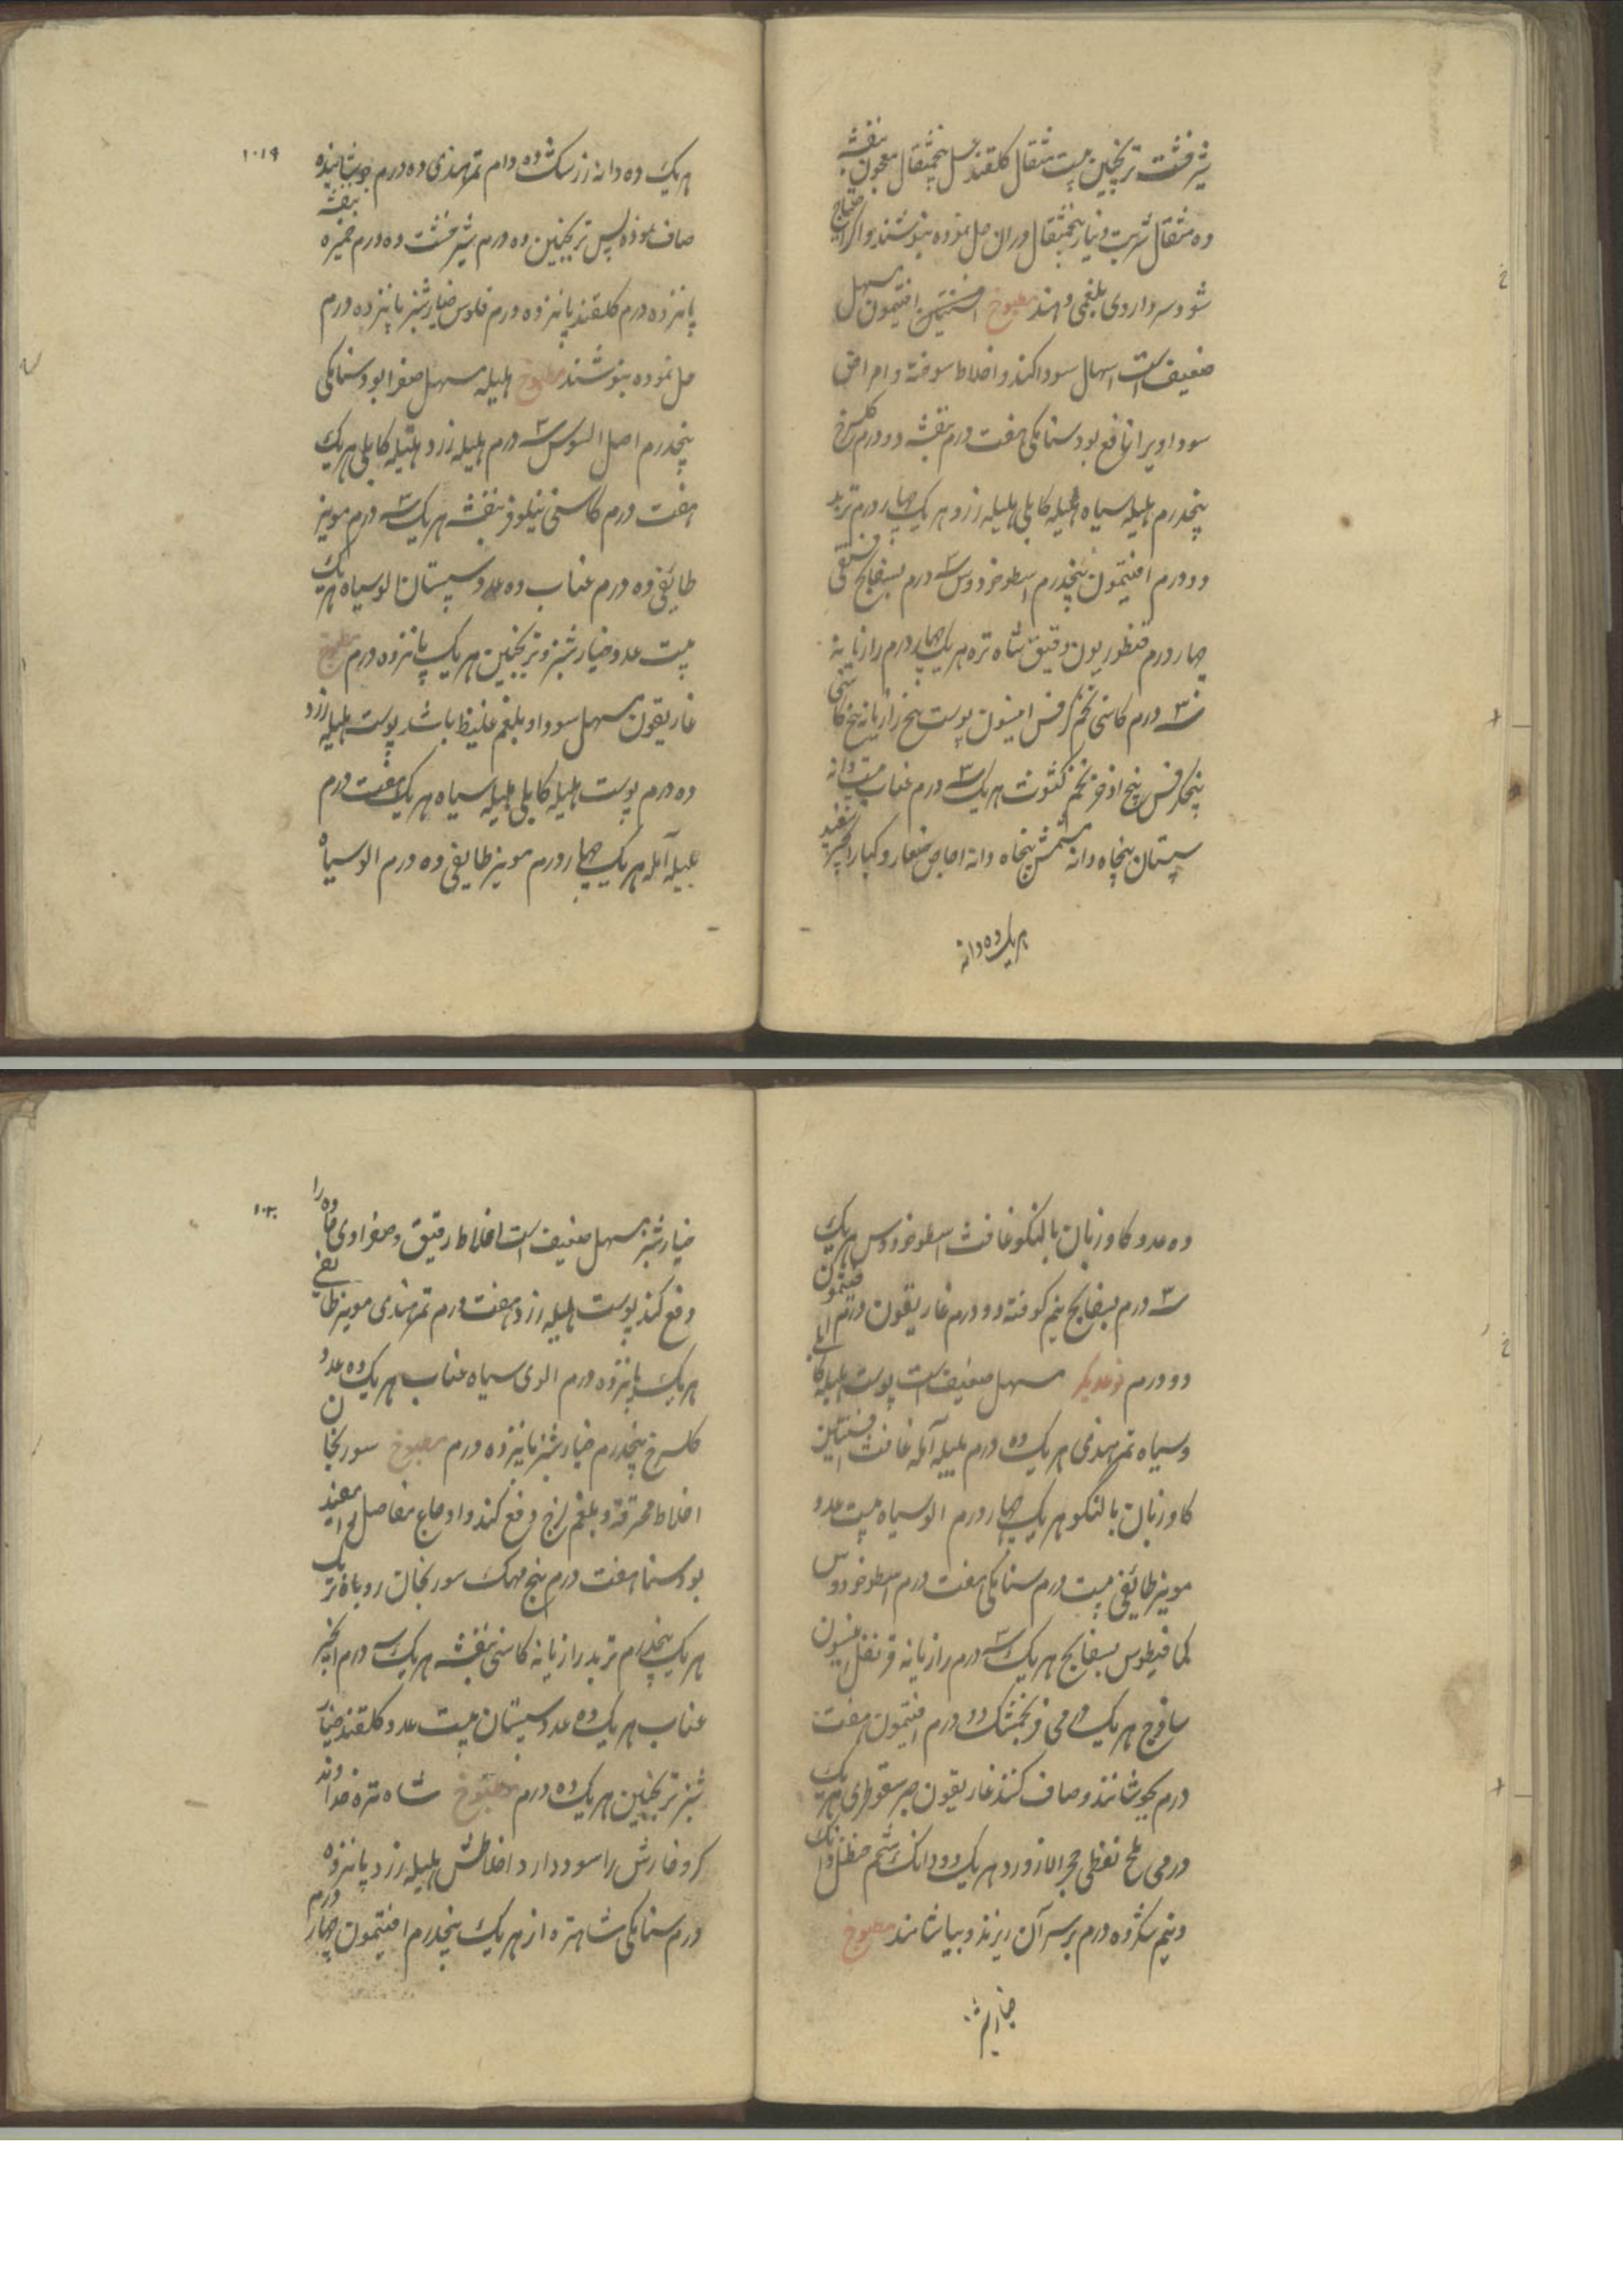 شیرخشت ترنجبین بیست مثقال کلقند عسل پنجمثقال معجون بنفشه
ده مثقال شربت دینار پنجمثقال دران حل نموده بنوشند و اگر احتیاج
شود سه داروی بلغمی دهند مطبوخ افسنتین افتیمون مسهل
ضعیف است اسهال سودا کند و اخلاط سوخته و امراض
سوداویرا نافع بود سنامکی هفت درم بنفشه دو درم کلسرخ
پنجدرم هلیله سیاه هلیله کابلی هلیله زرد هر یک چهار درم تربد
دو درم افتیمون پنجدرم اسطوخودوس سه درم بسفایج فستقی
چهار درم قنطوریون دقیق شاه تره هر یک چهار درم رازیانه
سه درم کاسنی تخم کرفس انیسون پوست بیخ رازیانه بیخ کاسنی
بیخ کرفس بیخ اذخر تخم کشوث هر یک سه درم عناب بیست دانه
سپستان پنجاه دانه مشمش پنجاه دانه اجاص صغار و کبار انجیر سفید
هر یک ده دانه
۱۰۱۹
هر یک ده دانه زرشک ده درم تمرهندی ده درم جوشانیده
صاف نموده پس ترنجبین ده درم شیرخشت ده درم خمیره بنفشه
پانزده درم کلقند پانزده درم فلوس خیارشنبر پانزده درم
حل نموده بنوشند مطبوخ هلیله مسهل صفرا بود سنامکی
پنجدرم اصل السوس سه درم هلیله زرد هلیله کابلی هر یک
هفت درم کاسنی نیلوفر بنفشه هر یک سه درم مویز
طایفی ده درم عناب ده عدد سپستان الو سیاه هر یک
بیست عدد خیارشنبر و ترنجبین هر یک پانزده درم مطبوخ
غاریقون مسهل سودا و بلغم غلیظ باشد پوست هلیله زرد
ده درم پوست هلیله کابلی هلیله سیاه هر یک هفت درم
بلیله آمله هر یک چهار درم مویز طایفی ده درم الو سیاه
ده عدد کاوزبان بالنکو غافث اسطوخودوس هر یک
سه درم بسفایج نیم کوفته دو درم غاریقون درم افتیمون
دو درم نوعدیکر مسهل ضعیف است پوست هلیله کابلی
و سیاه تمرهندی هر یک ده درم بلیله آمله غافث افسنتین
کاوزبان بالنکو هر یک چهار درم الو سیاه بیست عدد
مویز طایفی بیست درم سنامکی هفت درم اسطوخودوس
کمافیطوس بسفایج هر یک سه درم رازیانه قرنفل انیسون
ساذج هر یک درمی فرنجمشک دو درم افتیمون هفت
درم بجوشانند و صاف کنند غاریقون صبر سقوطری هر یک
درمی ملح نفطی حجر لازورد هر یک دو دانک شحم حنظل دانک
و نیم شکر ده درم بر سر آن ریزند و بیاشامند مطبوخ
خیارشنبر
۱۰۲۰
خیارشنبر مسهل ضعیف است اخلاط رقیق و صفراوی ماده را
دفع کند پوست هلیله زرد هفت درم تمرهندی مویز طایفی
هر یک پانزده درم الوی سیاه عناب هر یک ده عدد
کلسرخ پنجدرم خیارشنبر پانزده درم مطبوخ سورنجان
اخلاط محترقه و بلغم لزج دفع کند و اوجاع مفاصل را مفید
بود سنا هفت درم بیخ مهک سورنجان روباه تربک
هر یک پنجدرم تربد رازیانه کاسنی بنفشه هر یک سه درم انجیر
عناب هر یک ده عدد سپستان بیست عدد کلقند خیار
شنبر ترنجبین هر یک ده درم مطبوخ شاه تره خداوند
کر و خارش را سود دارد اخلاطش هلیله زرد پانزده
درم سنامکی شاهتره از هر یک پنجدرم افتیمون چهار درم